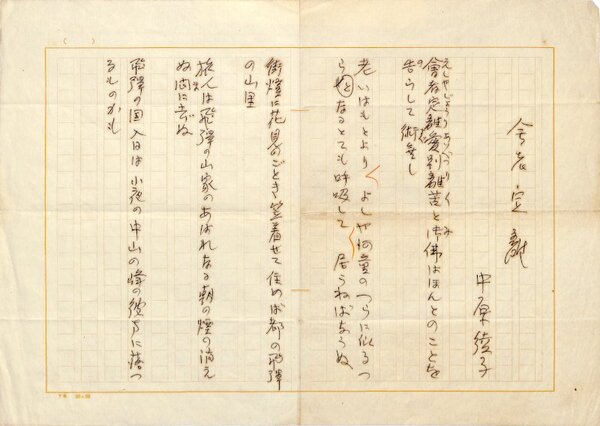 会者定離
中原綾子
會者定離愛別離苦と御佛はほんとのことを
告らして術無し
老いはもとより よしや何童のつらに似るつ
らとなるとても呼吸して 居らねばならぬ
街燈に花見のごとき笠着せて住めば都の飛騨
の山里
旅人は飛騨の山家のあはれなる朝の煙の消え
ぬ間に立ぬ
飛騨の国入日は小夜の中山の峰の彼方に落つ
るものかも